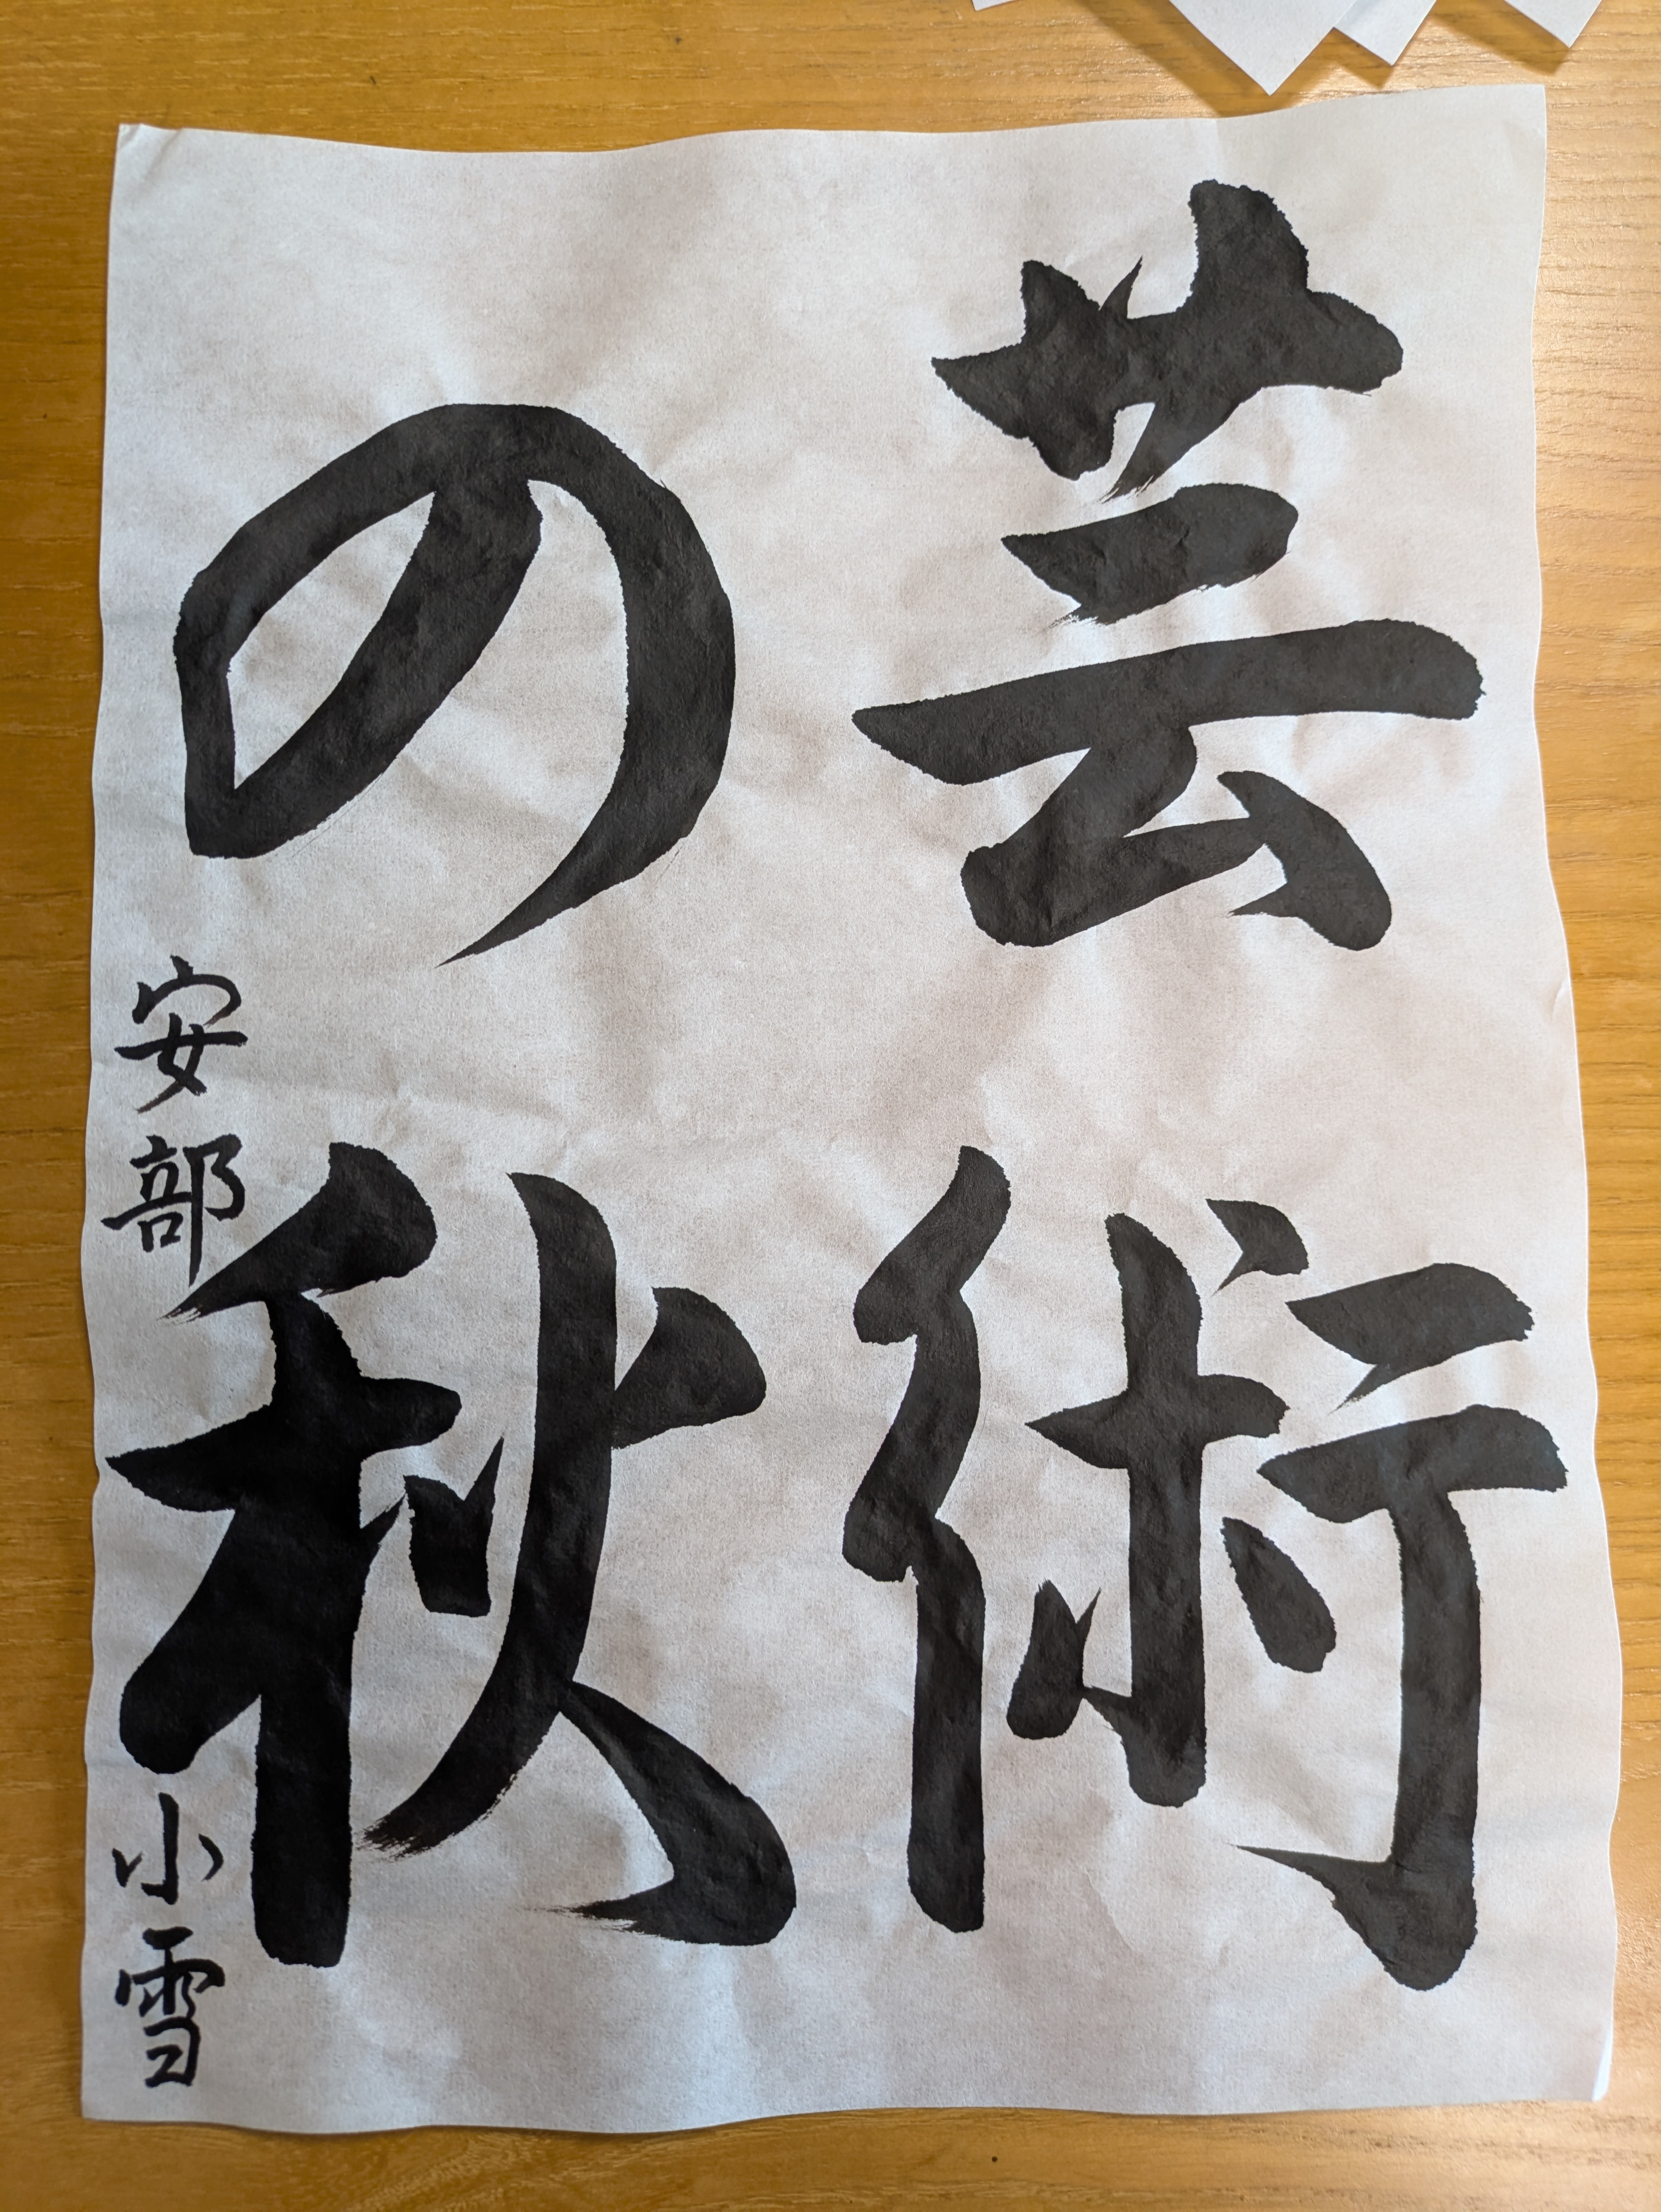 芸術
の秋
安部小雪